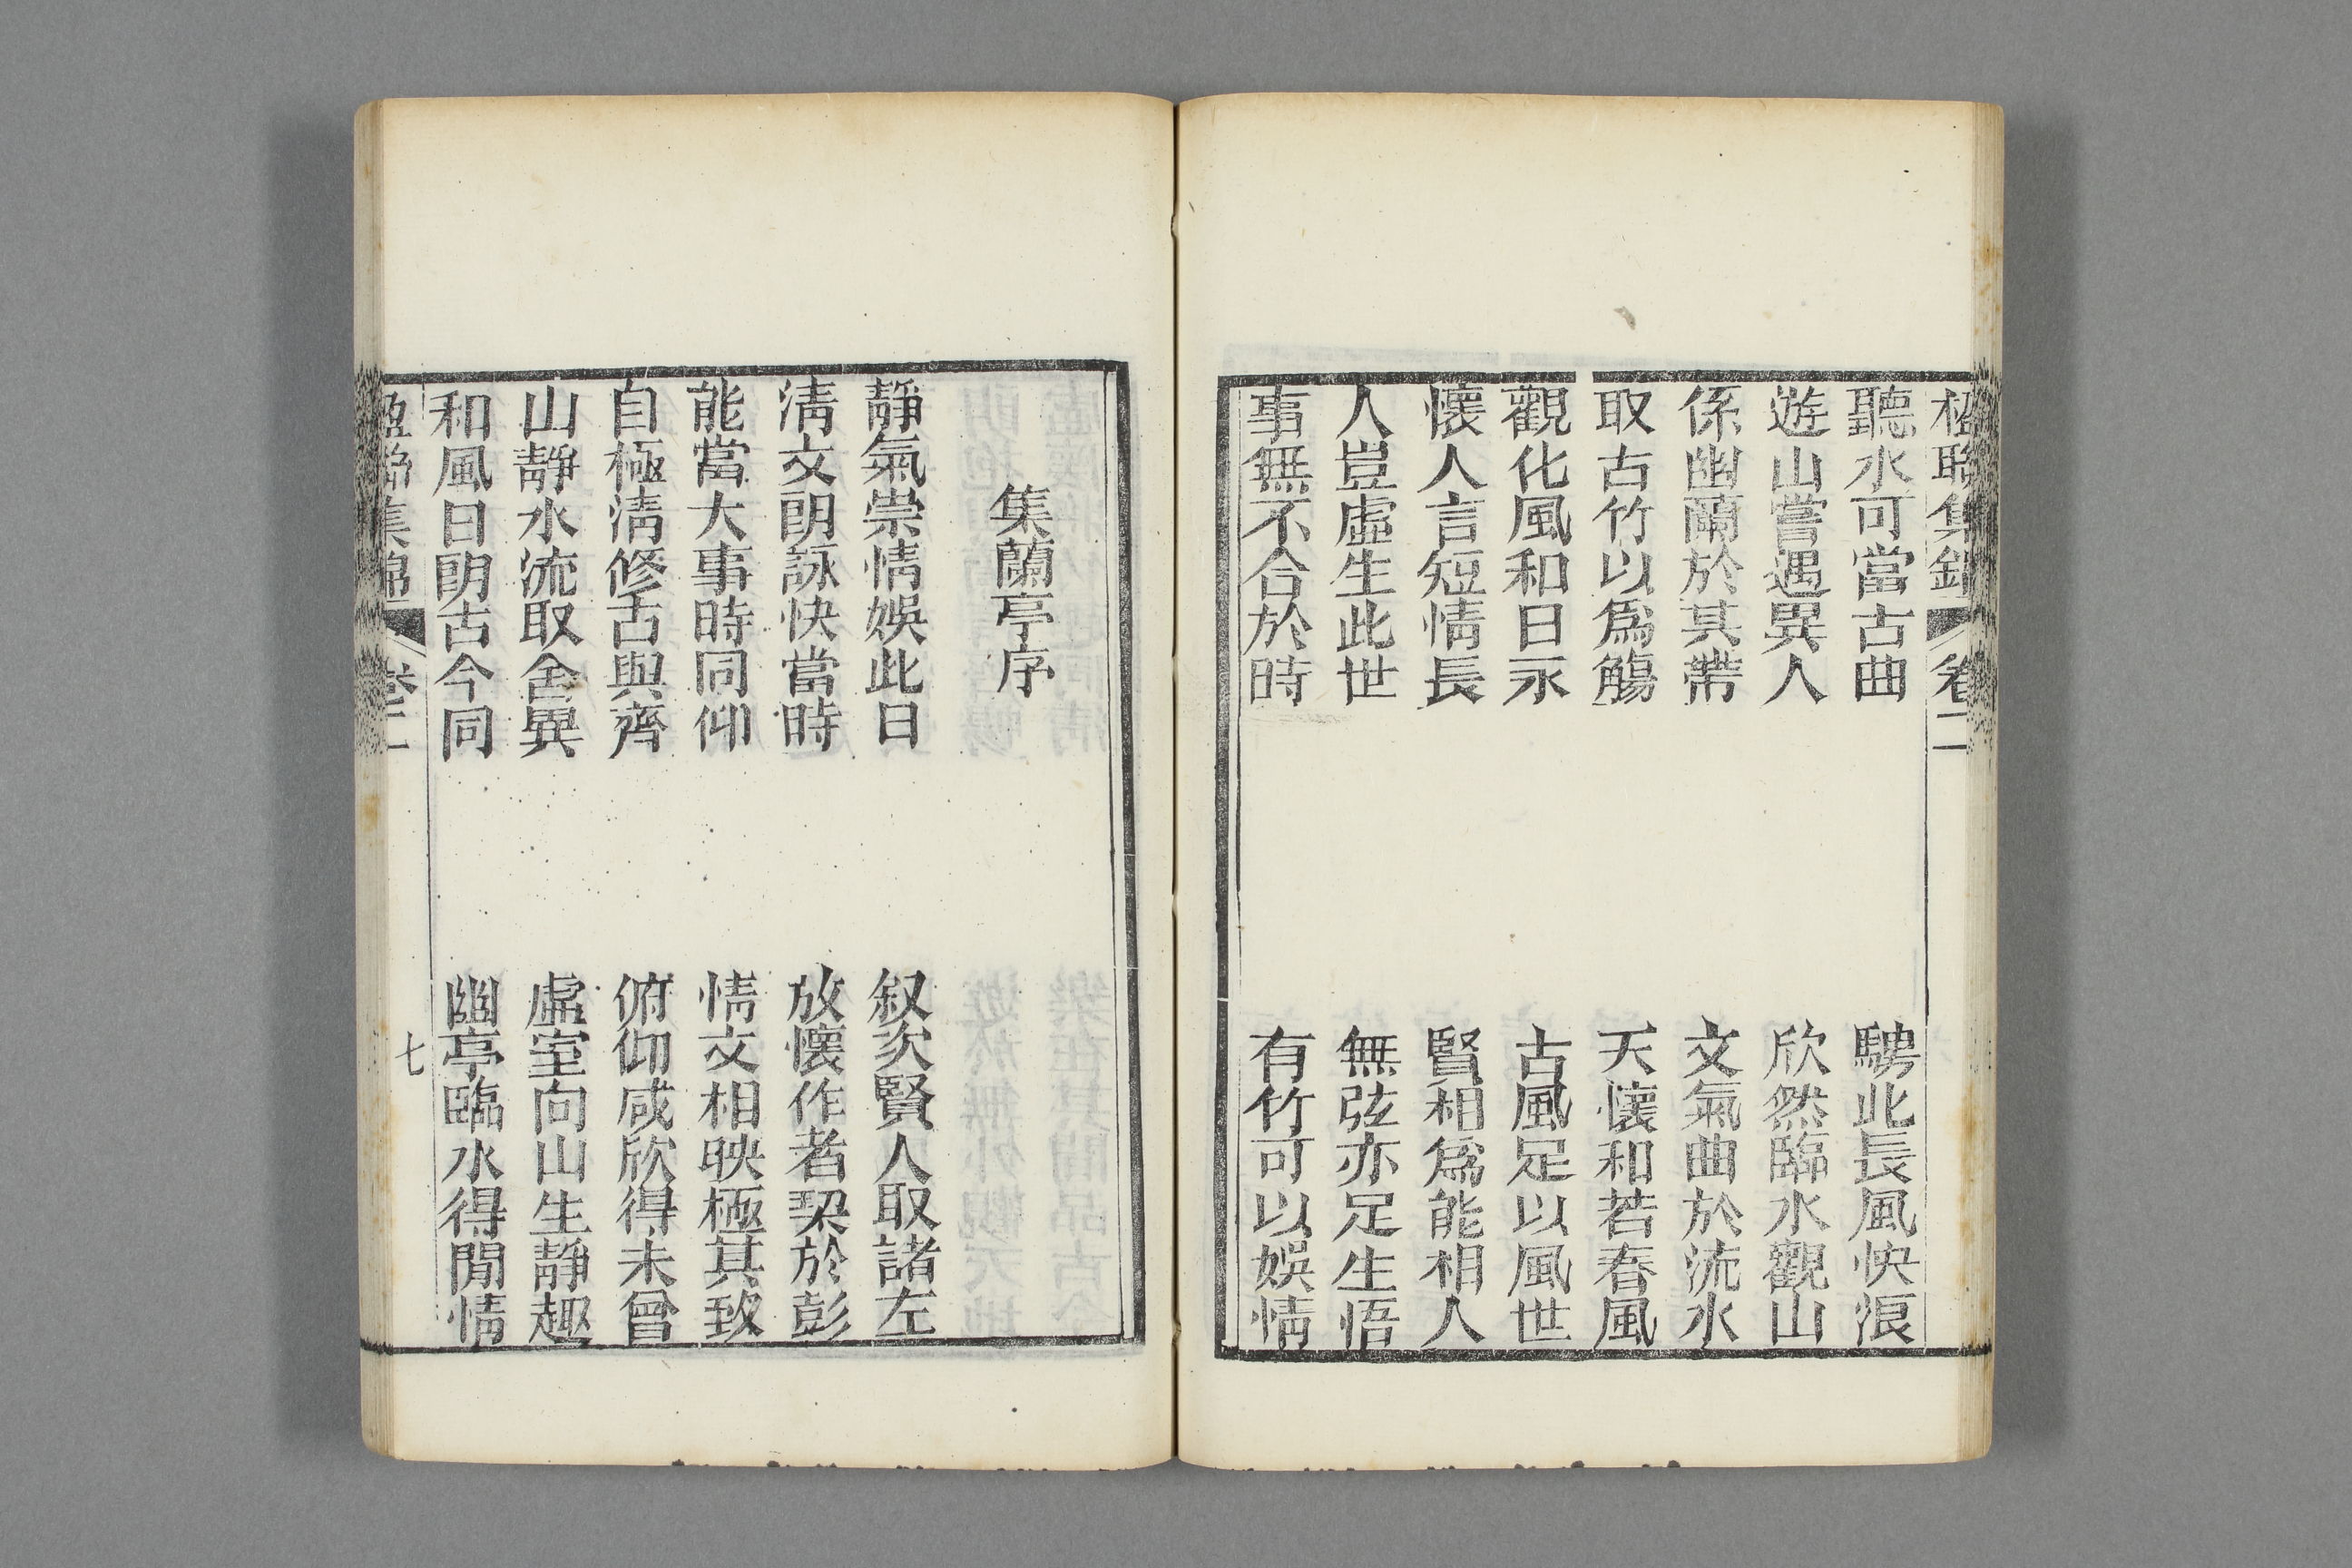 楹聯集錦 卷二
聽水可當古曲 騁此長風快浪
遊山嘗遇異人 欣然臨水觀山
係幽蘭於其帶 文氣曲於流水
取古竹以爲觴 天懷和若春風
觀化風和日永 古風足以風世
懷人言短情長 賢相爲能相人
人豈虛生此世 無弦亦足生悟
事無不合於時 有竹可以娛情
集蘭亭序
靜氣崇情娛此日 叙次賢人取諸左
清文朗詠快當時 放懷作者契於彭
能當大事時同仰 情文相映極其致
自極清修古與齊 俯仰咸欣得未曾
山靜水流取舍異 虛室向山生靜趣
和風日朗古今同 幽亭臨水得閒情
楹聯集錦 卷二 七